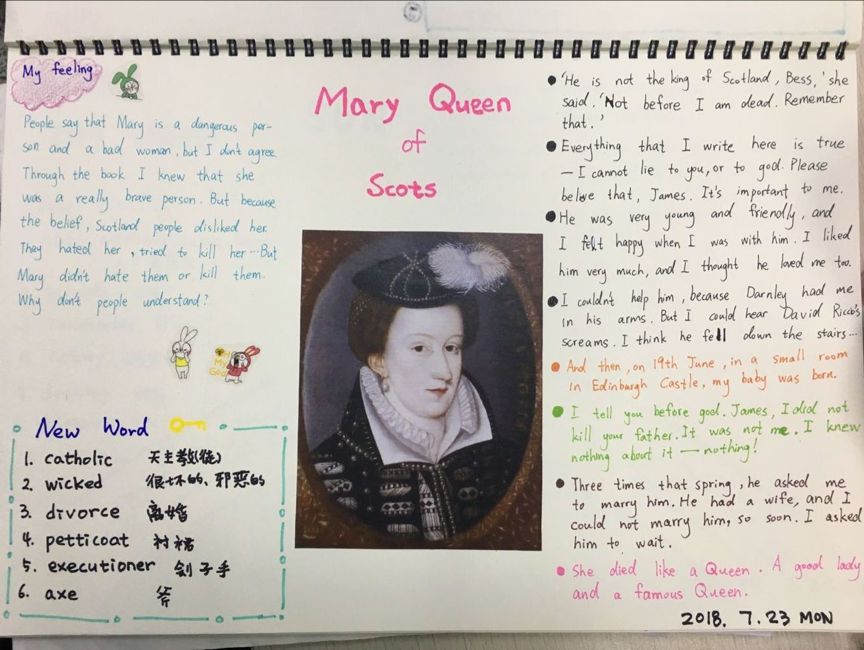 My feeling
People say that Mary is a dangerous per-
son and a bad woman, but I don't agree.
Through the book I knew that she
was a really brave person. But because
the belief, Scotland people disliked her.
They hated her, tried to kill her...But
Mary didn't hate them or kill them.
Why don't people understand?
My
God
New Word
1. catholic 天主教(徒)
2. wicked 很坏的、邪恶的
3. divorce 离婚
4. petticoat 衬裙
5. executioner 刽子手
6. axe 斧
Mary Queen
of
Scots
'He is not the king of Scotland, Bess,' she
said. 'Not before I am dead. Remember
that.'
Everything that I write here is true
— I cannot lie to you, or to god. Please
beleve that, James. It's important to me.
He was very young and friendly, and
I felt happy when I was with him. I liked
him very much, and I thought he loved me too.
I couldn't help him, because Darnley had me
in his arms. But I could hear David Riccio's
screams. I think he fell down the stairs...
And then, on 19th June, in a small room
in Edinburgh Castle, my baby was born.
I tell you before god. James, I did not
kill your father. It was not me. I knew
nothing about it — nothing!
Three times that spring, he asked me
to marry him. He had a wife, and I
could not marry him, so soon. I asked
him to wait.
She died like a Queen. A good lady
and a famous Queen.
2018. 7.23 MON